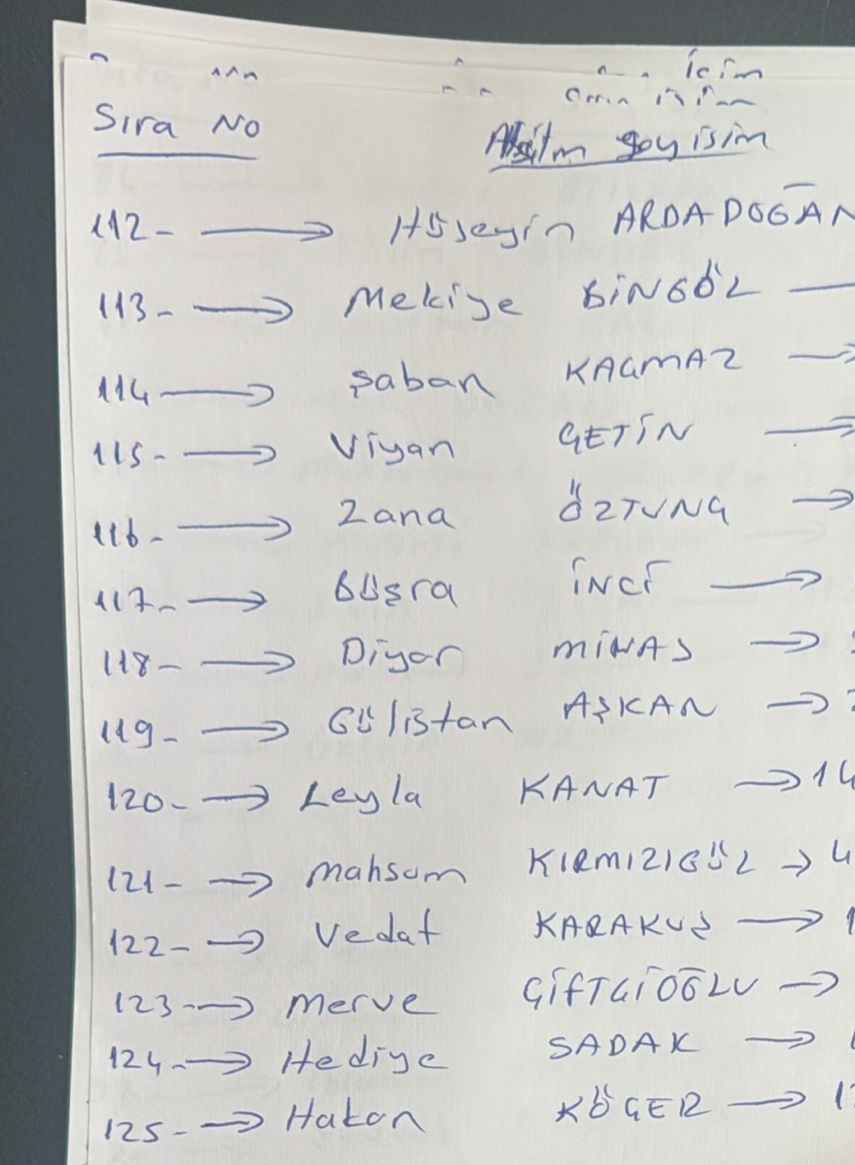 için
Sıra No
soyisim
112- → Hüseyin ARDA DOĞAN
113- → Mekiye BİNGÖL →
114 → Şaban KAÇMAZ →
115- → Viyan ÇETİN →
116- → Zana ÖZTUNÇ →
117- → Büşra İNCİ →
118- → Diyar MİNAS →
119- → Gülistan AŞKAN →
120- → Leyla KANAT → 14
121- → Mahsum KIRMIZIGÜL → 4
122- → Vedat KARAKUŞ → 1
123- → Merve ÇİFTÇİOĞLU →
124- → Hediye SADAK →
125- → Hakan KÖÇER → 1